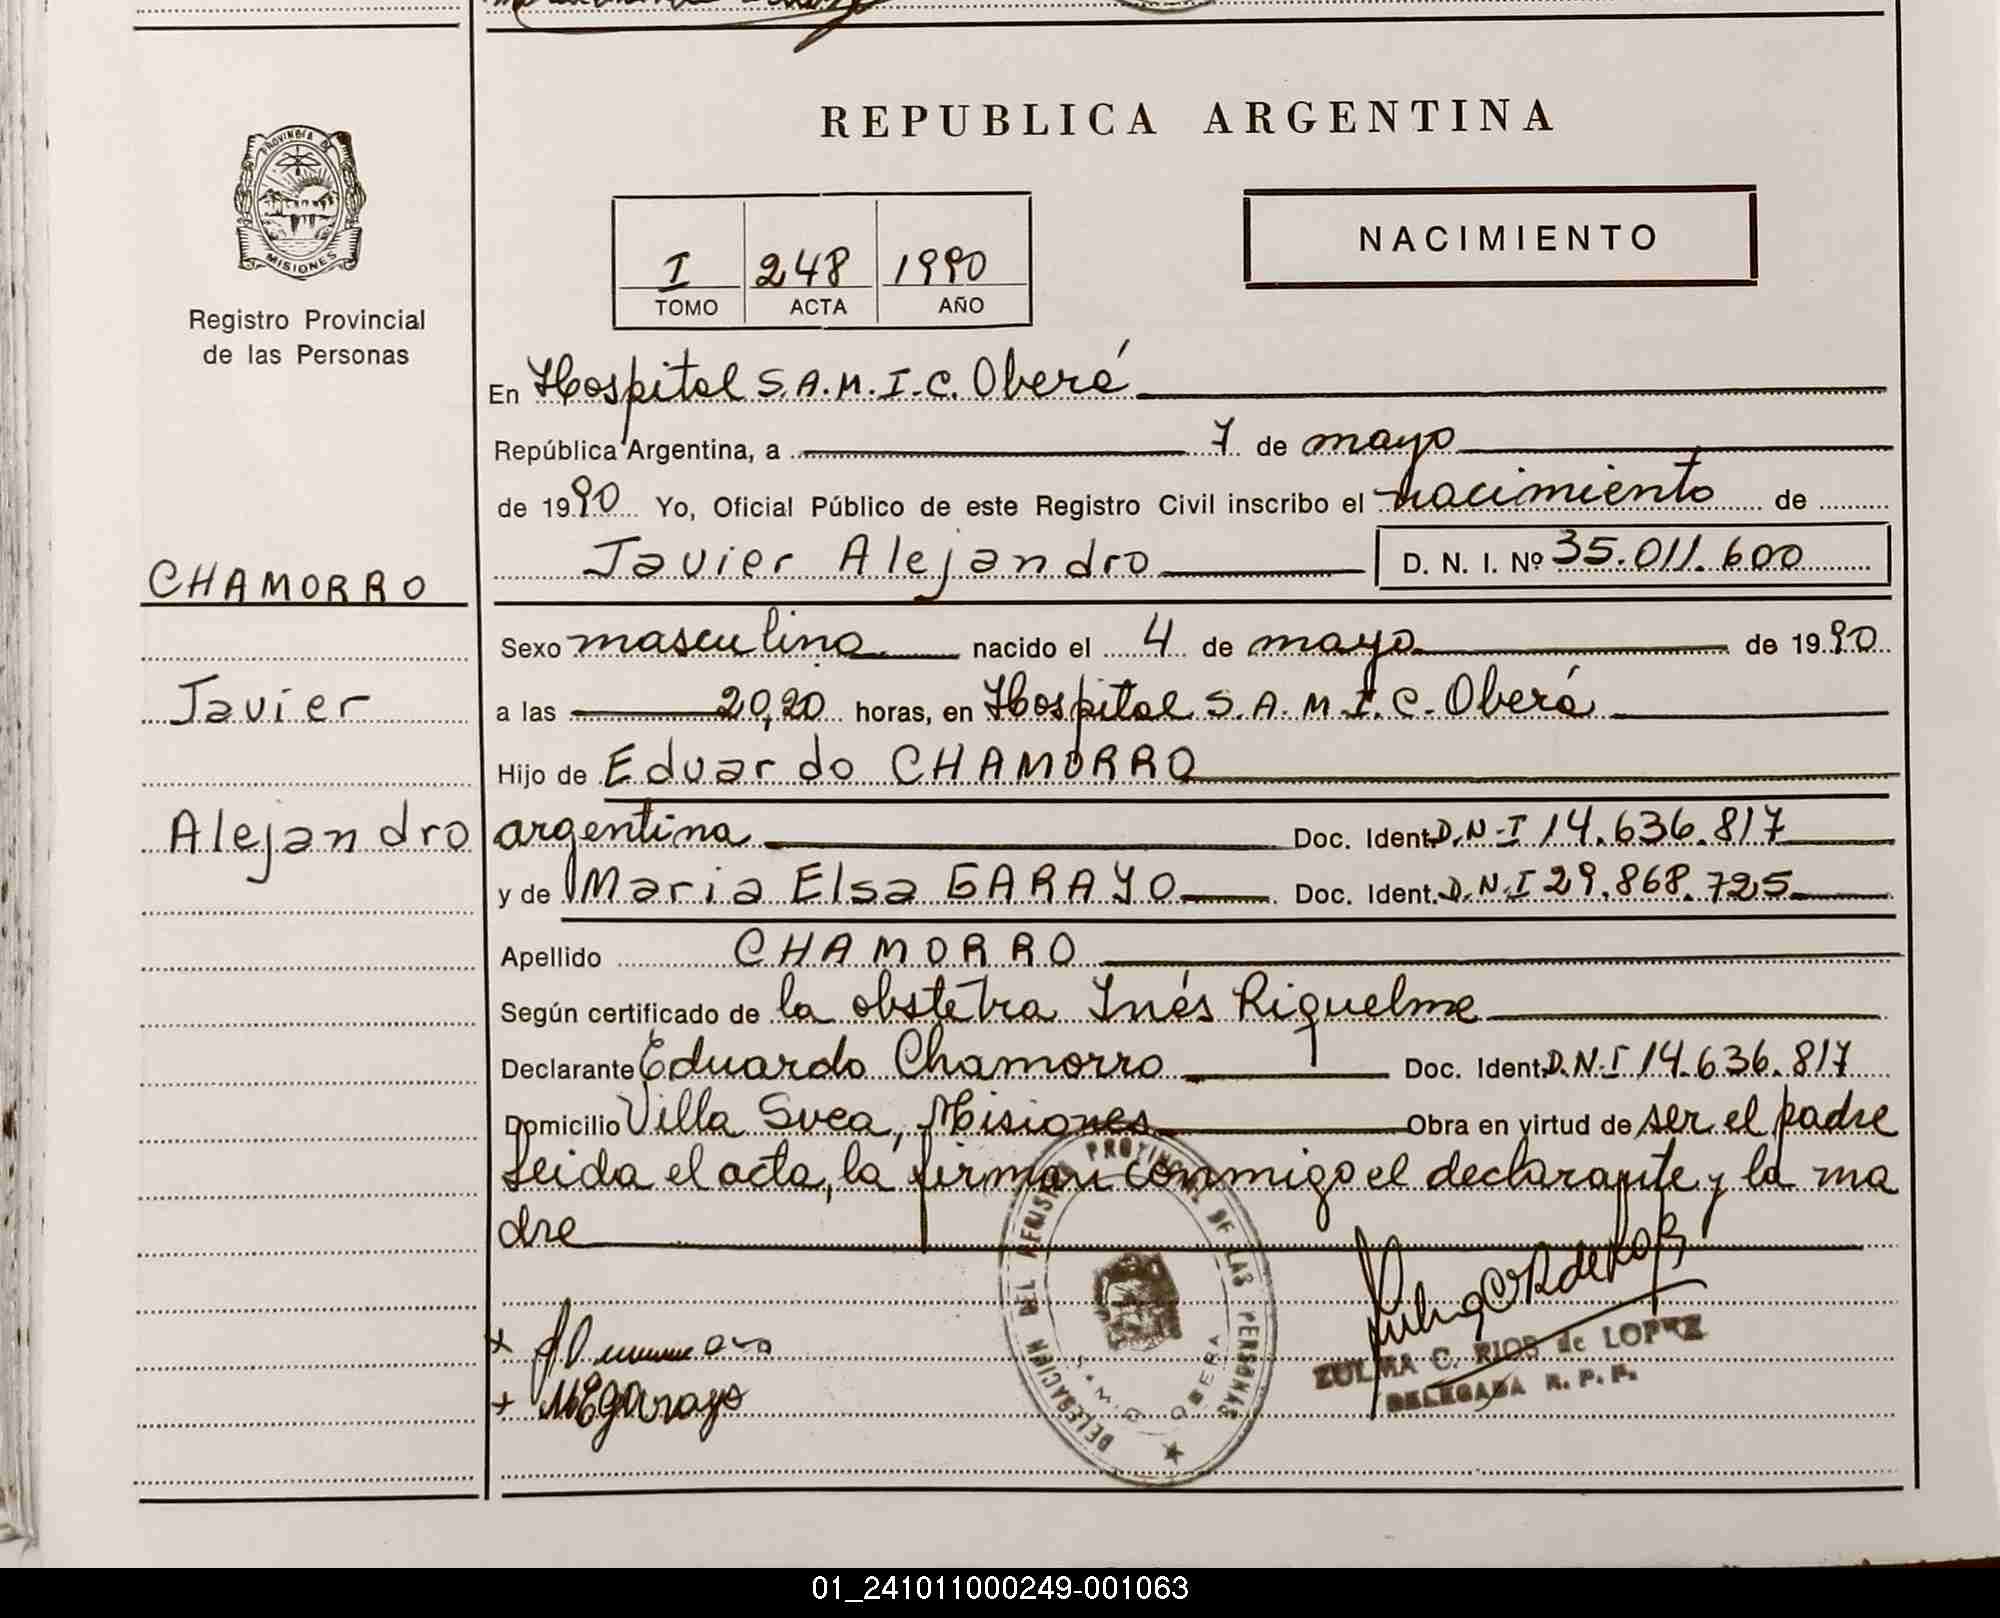 REPUBLICA ARGENTINA
PROVINCIA DE
MISIONES
Registro Provincial
de las Personas
I 248 1990
TOMO ACTA AÑO
NACIMIENTO
En Hospital S.A.M.I.C. Oberá
República Argentina, a 7 de mayo
de 1990 Yo, Oficial Público de este Registro Civil inscribo el nacimiento de
Javier Alejandro D. N. I. Nº 35.011.600
CHAMORRO
Javier
Alejandro
Sexo masculino nacido el 4 de mayo de 1990
a las 20,20 horas, en Hospital S.A.M.I.C. Oberá
Hijo de Eduardo CHAMORRO
argentina Doc. Ident. D.N.I 14.636.817
y de Maria Elsa GARAYO Doc. Ident. D.N.I 29.868.725
Apellido CHAMORRO
Según certificado de la obstetra Inés Riquelme
Declarante Eduardo Chamorro Doc. Ident. D.N.I 14.636.817
Domicilio Villa Svea, Misiones Obra en virtud de ser el padre
Leida el acta, la firman conmigo el declarante y la ma
dre
DELEGACION DEL REGISTRO PROVINCIAL DE LAS PERSONAS
S.A.M.I.C. OBERA
MEGarayo
ZULMA C. RIOS de LOPEZ
DELEGADA R. P. P.
01_241011000249-001063